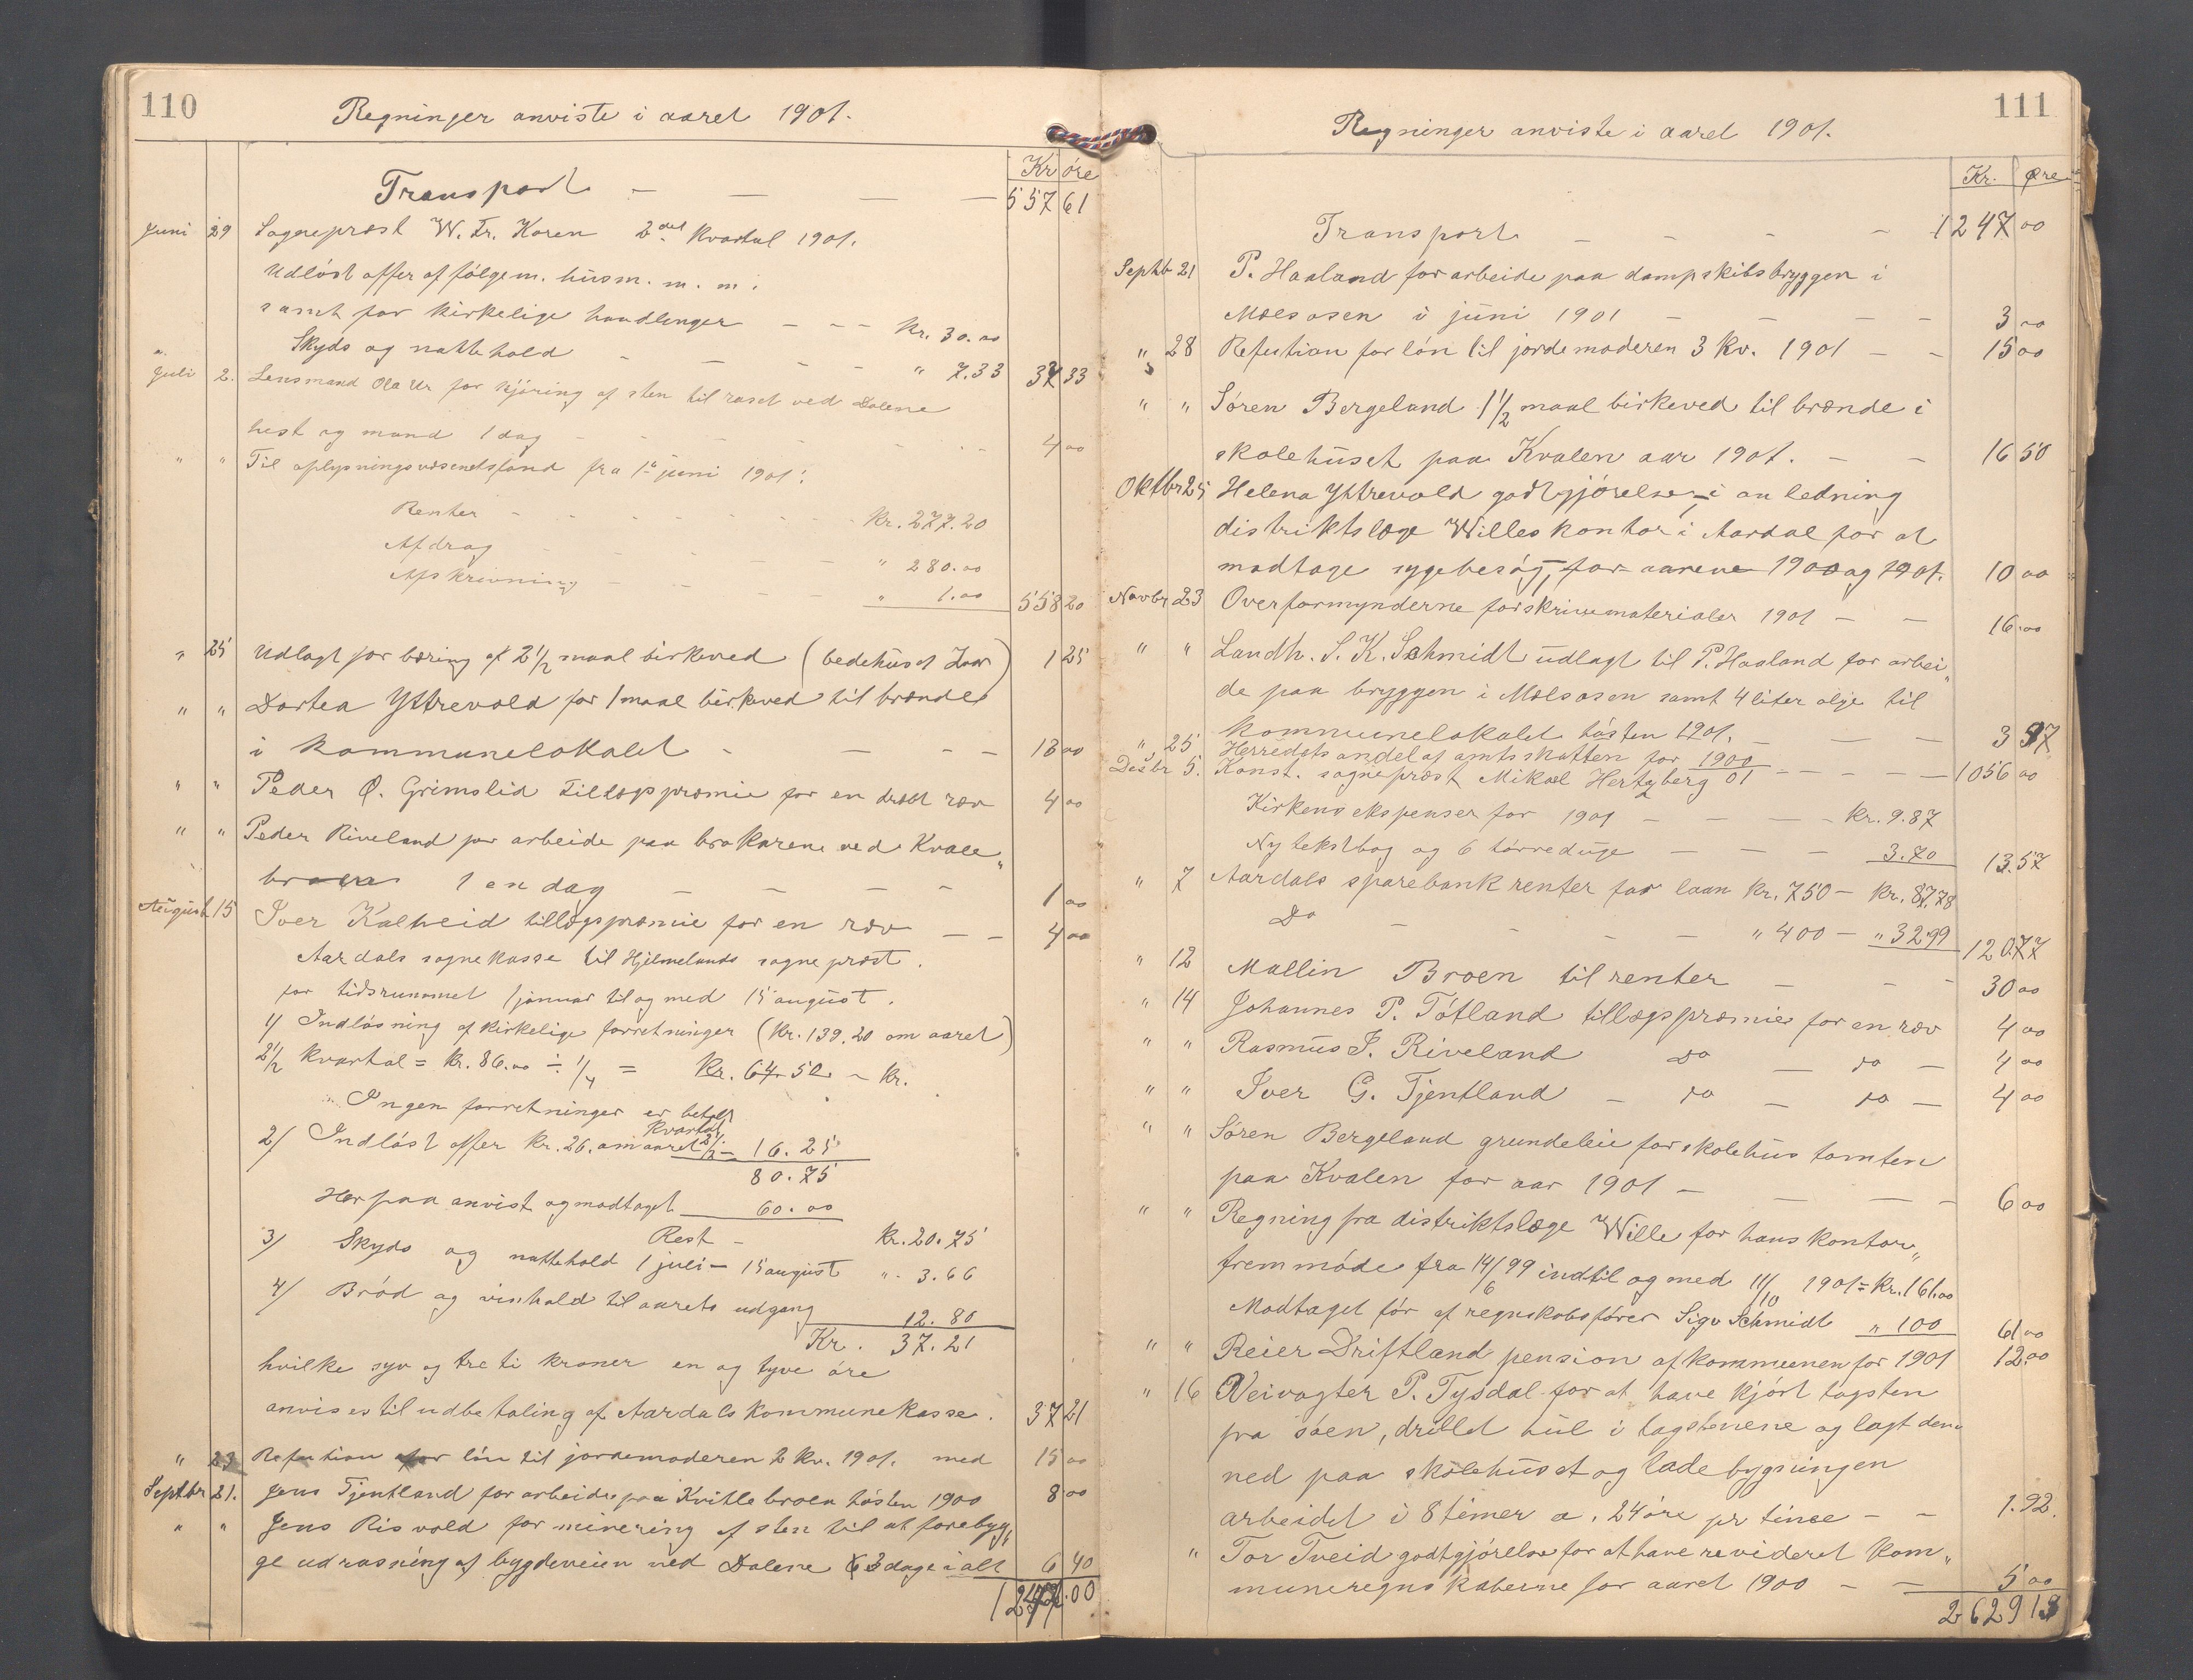 110
Regninger anviste i aaret 1901.
Kr øre
Transport — — — — 557 61
Juni 29 Sogneprest W. Fr. Koren 2det Kvartal 1901.
Udløst offer af følgem. husm. m. m.
samt for kirkelige handlinger — — — Kr. 30.00
Skyds og nattehold — — — — " 7.33 37 33
Juli 2. Lensmand for kjøring af sten til raset ved Dalene
hest og mand 1 dag — — — — 4 00
" " Til oplysningsvæsenetsfond fra 1ste juni 1901:
Renter — — — — Kr. 277.20
Afdrag — — — — " 280.00
Afskrivning — — — — " 1.00 558 20
" 25 Udlagt for bæring af 2 1/2 maal birkeved (bedehuset ) 1 25
" " Dortea Yttrevold for 1 maal birkeved til brænde
i kommunelokalet — — — — 13 00
" " Peder O. Grimslid tillægspræmie for en dræbt ræv 4 00
" " Peder Riveland for arbeide paa brokarene ved Kvale„
broen 1 en dag — — — — 1 00
August 15 Iver Kalheid tillægspræmie for en ræv — — 4 00
Aardals sognekasse til Hjelmelands sogneprest.
for tidsrummet 1 januar til og med 15 august.
1/ Indløsning af kirkelige forretninger (Kr. 139.20 om aaret)
2 1/2 kvartal = Kr. 86.00 ÷ 1/4 = Kr. 64.50 — Kr.
Ingen forretninger er betalt
kvartal
2/ Indløst offer Kr. 26. om aaret 2 1/2 — 16.25
80.75
Herpaa anvist og modtaget 60.00
Rest — Kr. 20.75
3/ Skyds og nattehold 1 juli — 15 august " 3.66
4/ Brød og vinhold til aarets udgang 12.80
Kr. 37.21
hvilke syv og tre ti kroner en og tyve øre
anvises til udbetaling af Aardals kommunekasse. 37 21
" 23 Refution for løn til jordemoderen 2 kv. 1901. med 15 00
Septbr 21. Jens Tjentland for arbeide paa Kvitlebroen høsten 1900 8 00
" " Jens Risvold for minering af sten til at forebyg„
ge udrasning af bygdeveien ved Dalene 3 dage i alt 6 40
1247.00
111
Regninger anviste i aaret 1901.
Kr. Øre
Transport — — — — 1247 00
Septb 21 P. Haaland for arbeide paa dampskibsbryggen i
Mælsosen i juni 1901 — — — — 3 00
" 28 Refution for løn til jordemoderen 3 Kv. 1901 — — 15 00
" " Søren Bergeland 1 1/2 maal birkeved til brænde i
skolehuset paa Kvalen aar 1901. — — 16 50
Oktbr 25 Helena Yttrevold godtgjørelse i an ledning
distriktslæge Willes kontor i Aardal for at
modtage sygebesøg, for aarene 1900 og 1901. 10 00
Novbr 23 Overformynderne for skrivematerialer 1901 — — 16.00
" " Landh. S. K. Schmidt udlagt til P. Haaland for arbei„
de paa bryggen i Mælsosen samt 4 liter olje til
kommunelokalet høsten 1901. — — — 3 97
" 25 Herredets andel af amtsskatten for 1900 — — — — 1056 00
Desbr 5. Konst. sogneprest Mikal Hertzberg 01
Kirkens ekspenser for 1901 — — — — Kr. 9.87
Ny tekstbog og 6 tørreduge — — — 3.70 13.57
" 7 Aardals sparebank renter for laan Kr. 750 — Kr. 87.78
Do — — — — " 400 — " 32.99 120.77
" 12 Mallin Broen til renter — — — 30 00
" 14 Johannes P. Tøtland tillægspræmie for en ræv 4 00
" " Rasmus J. Riveland Do — Do — 4 00
" " Iver G. Tjentland — Do — Do — 4 00
" " Søren Bergeland grundeleie for skolehustomten
paa Kvalen for aar 1901 — — — — 6 00
" " Regning fra distriktslæge Wille for hans kontor„
fremmøde fra 14/6 99 indtil og med 11/10 1901 = Kr. 161.00
Modtaget før af regnskabsfører Sigv Schmidt " 100 61 00
" " Reier Driftland pension af kommunen for 1901 12.00
" 16 Veivogter P. Tysdal for at have kjørt tagsten
fra søen, drillet hul i tagstenene og lagt dem
ned paa skolehuset og ladebygningen
arbeidet i 8 timer a. 24 øre pr time — — 1.92.
" Tor Tveid godtgjørelse for at have revideret kom„
muneregnskaberne for aaret 1900 — — 5 00
2629 13